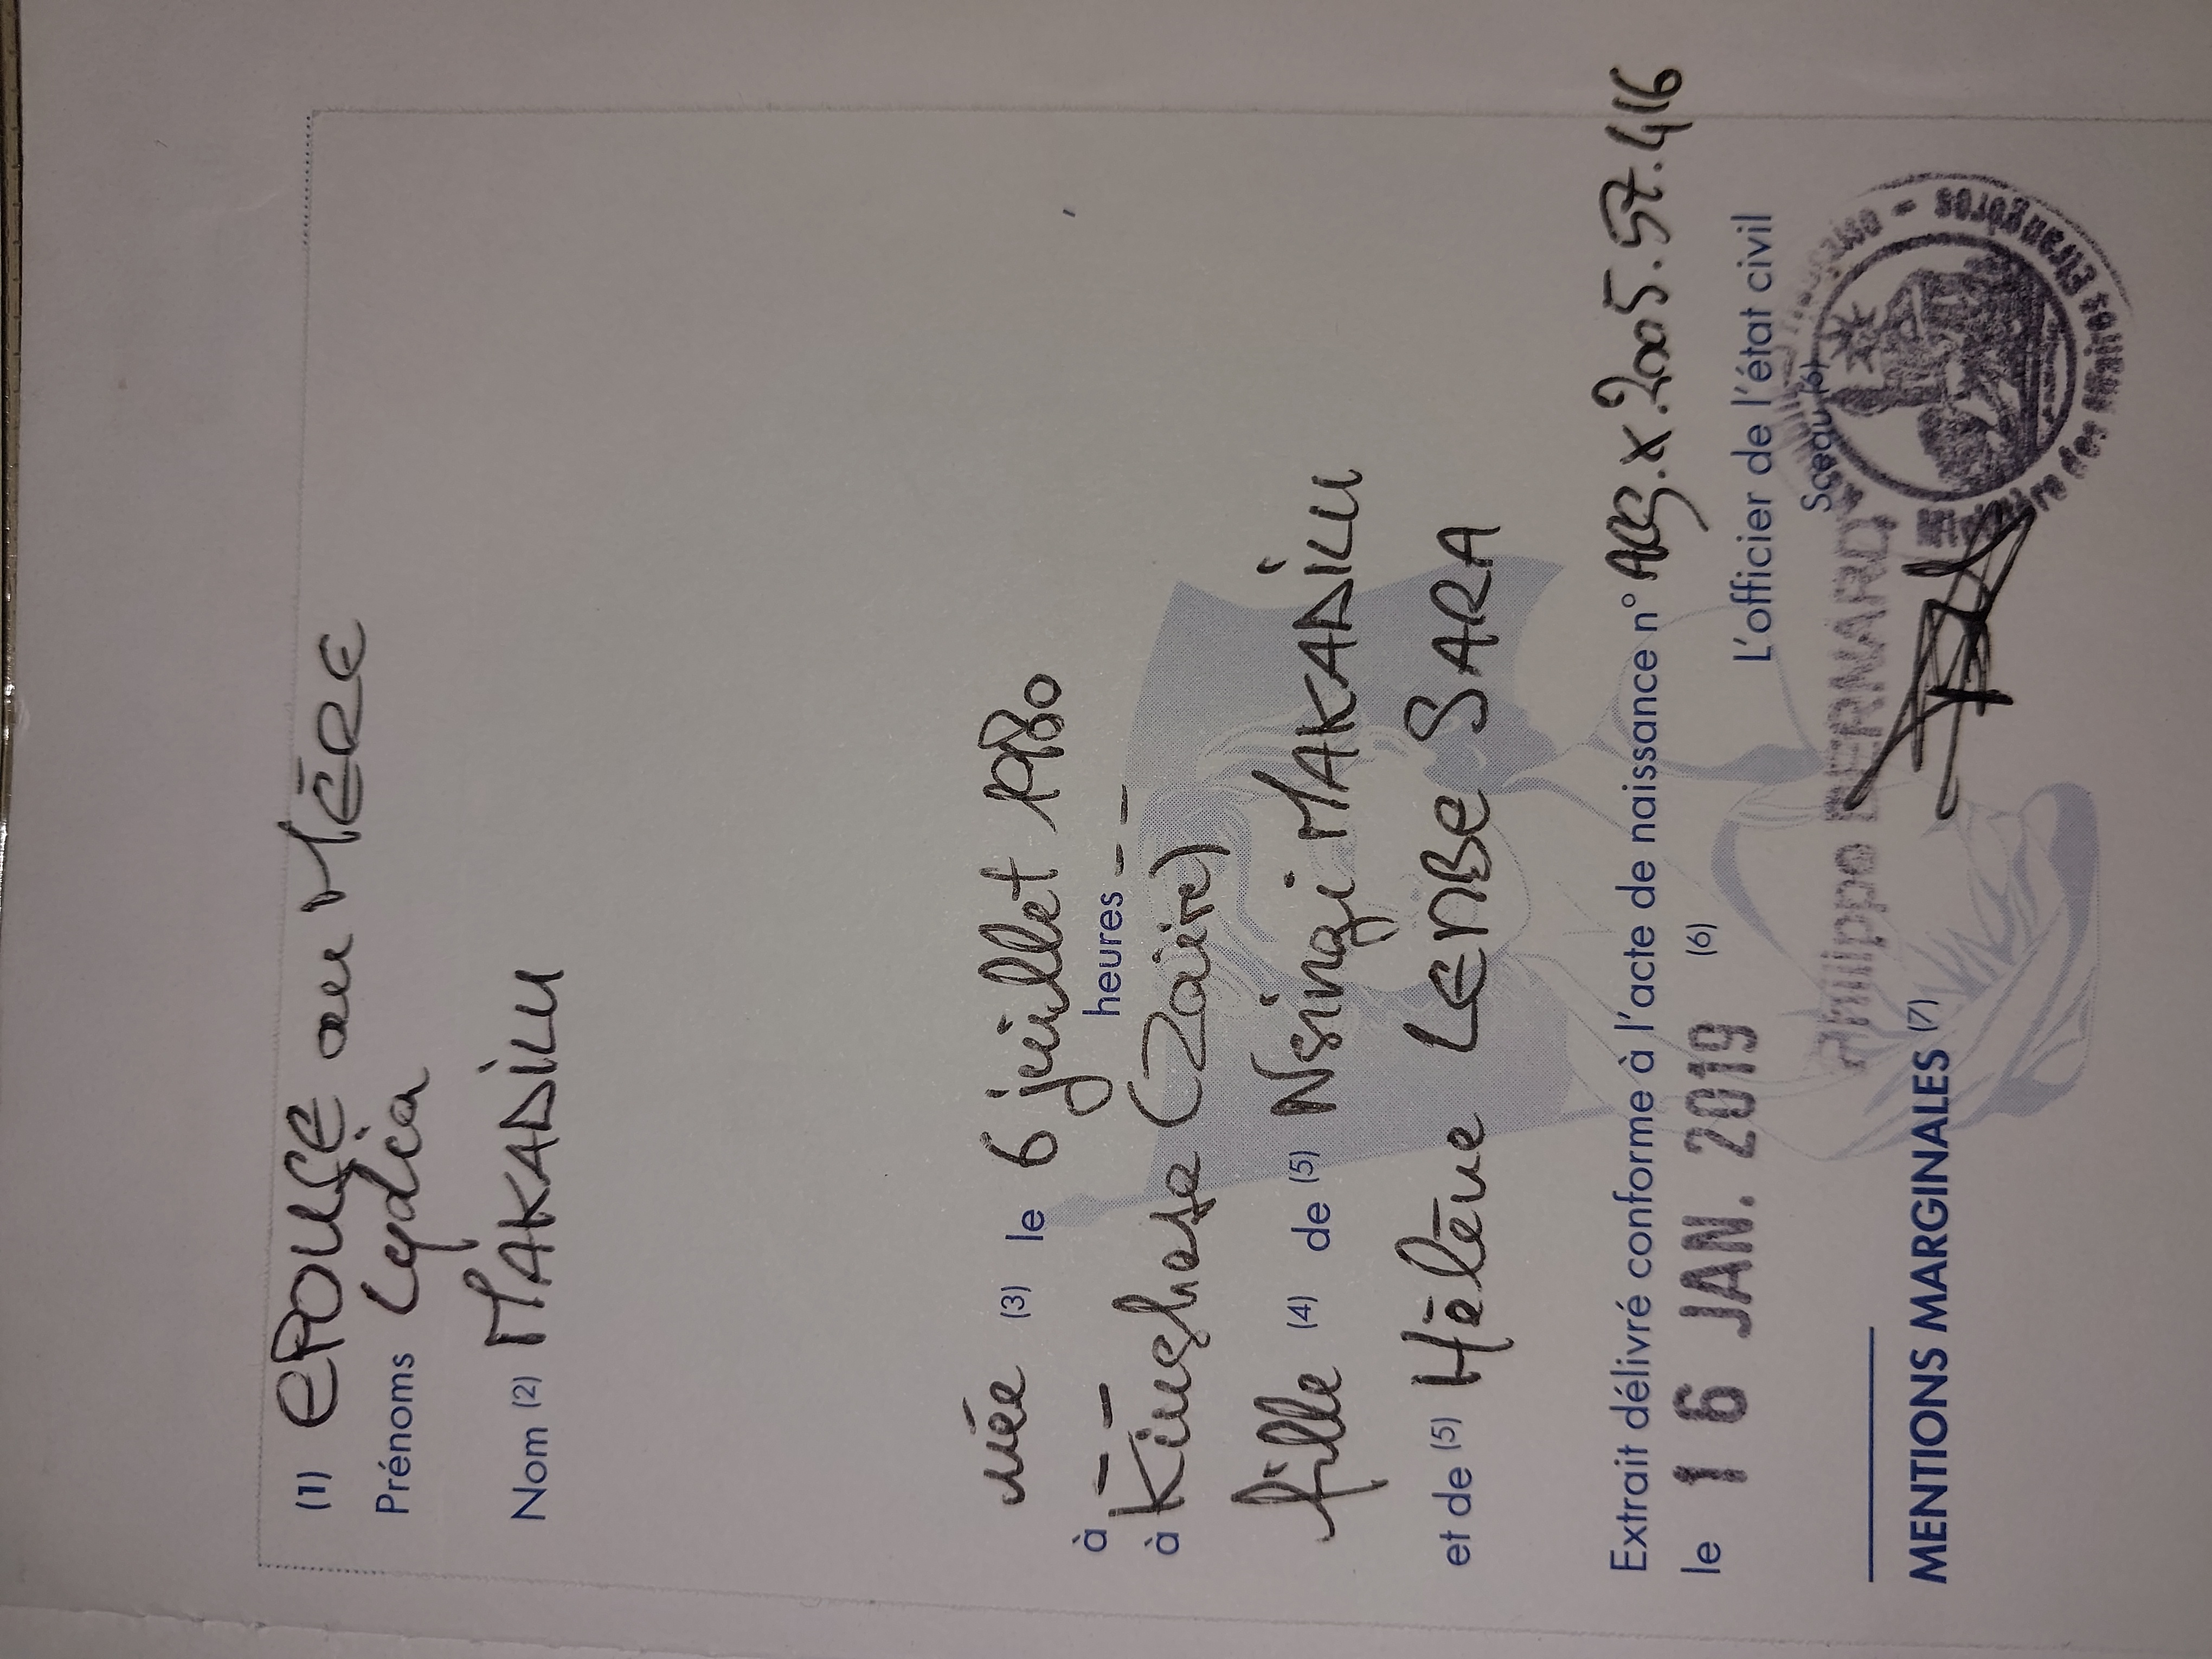 (1) EPOUSE ou MÈRE
Prénoms Lydia
Nom (2) MAKADILU
née (3) le 6 juillet 1980
à -- heures --
à Kinshasa (Zaïre)
fille (4) de (5) Nsingi MAKADILU
et de (5) Hélène LEMBE SARA
Extrait délivré conforme à l'acte de naissance n° X.2005.57.416
le 16 JAN. 2019 (6)
L'officier de l'état civil
Sceau (6)
Philippe BERNARD
Ministère des Affaires Etrangères
MENTIONS MARGINALES (7)